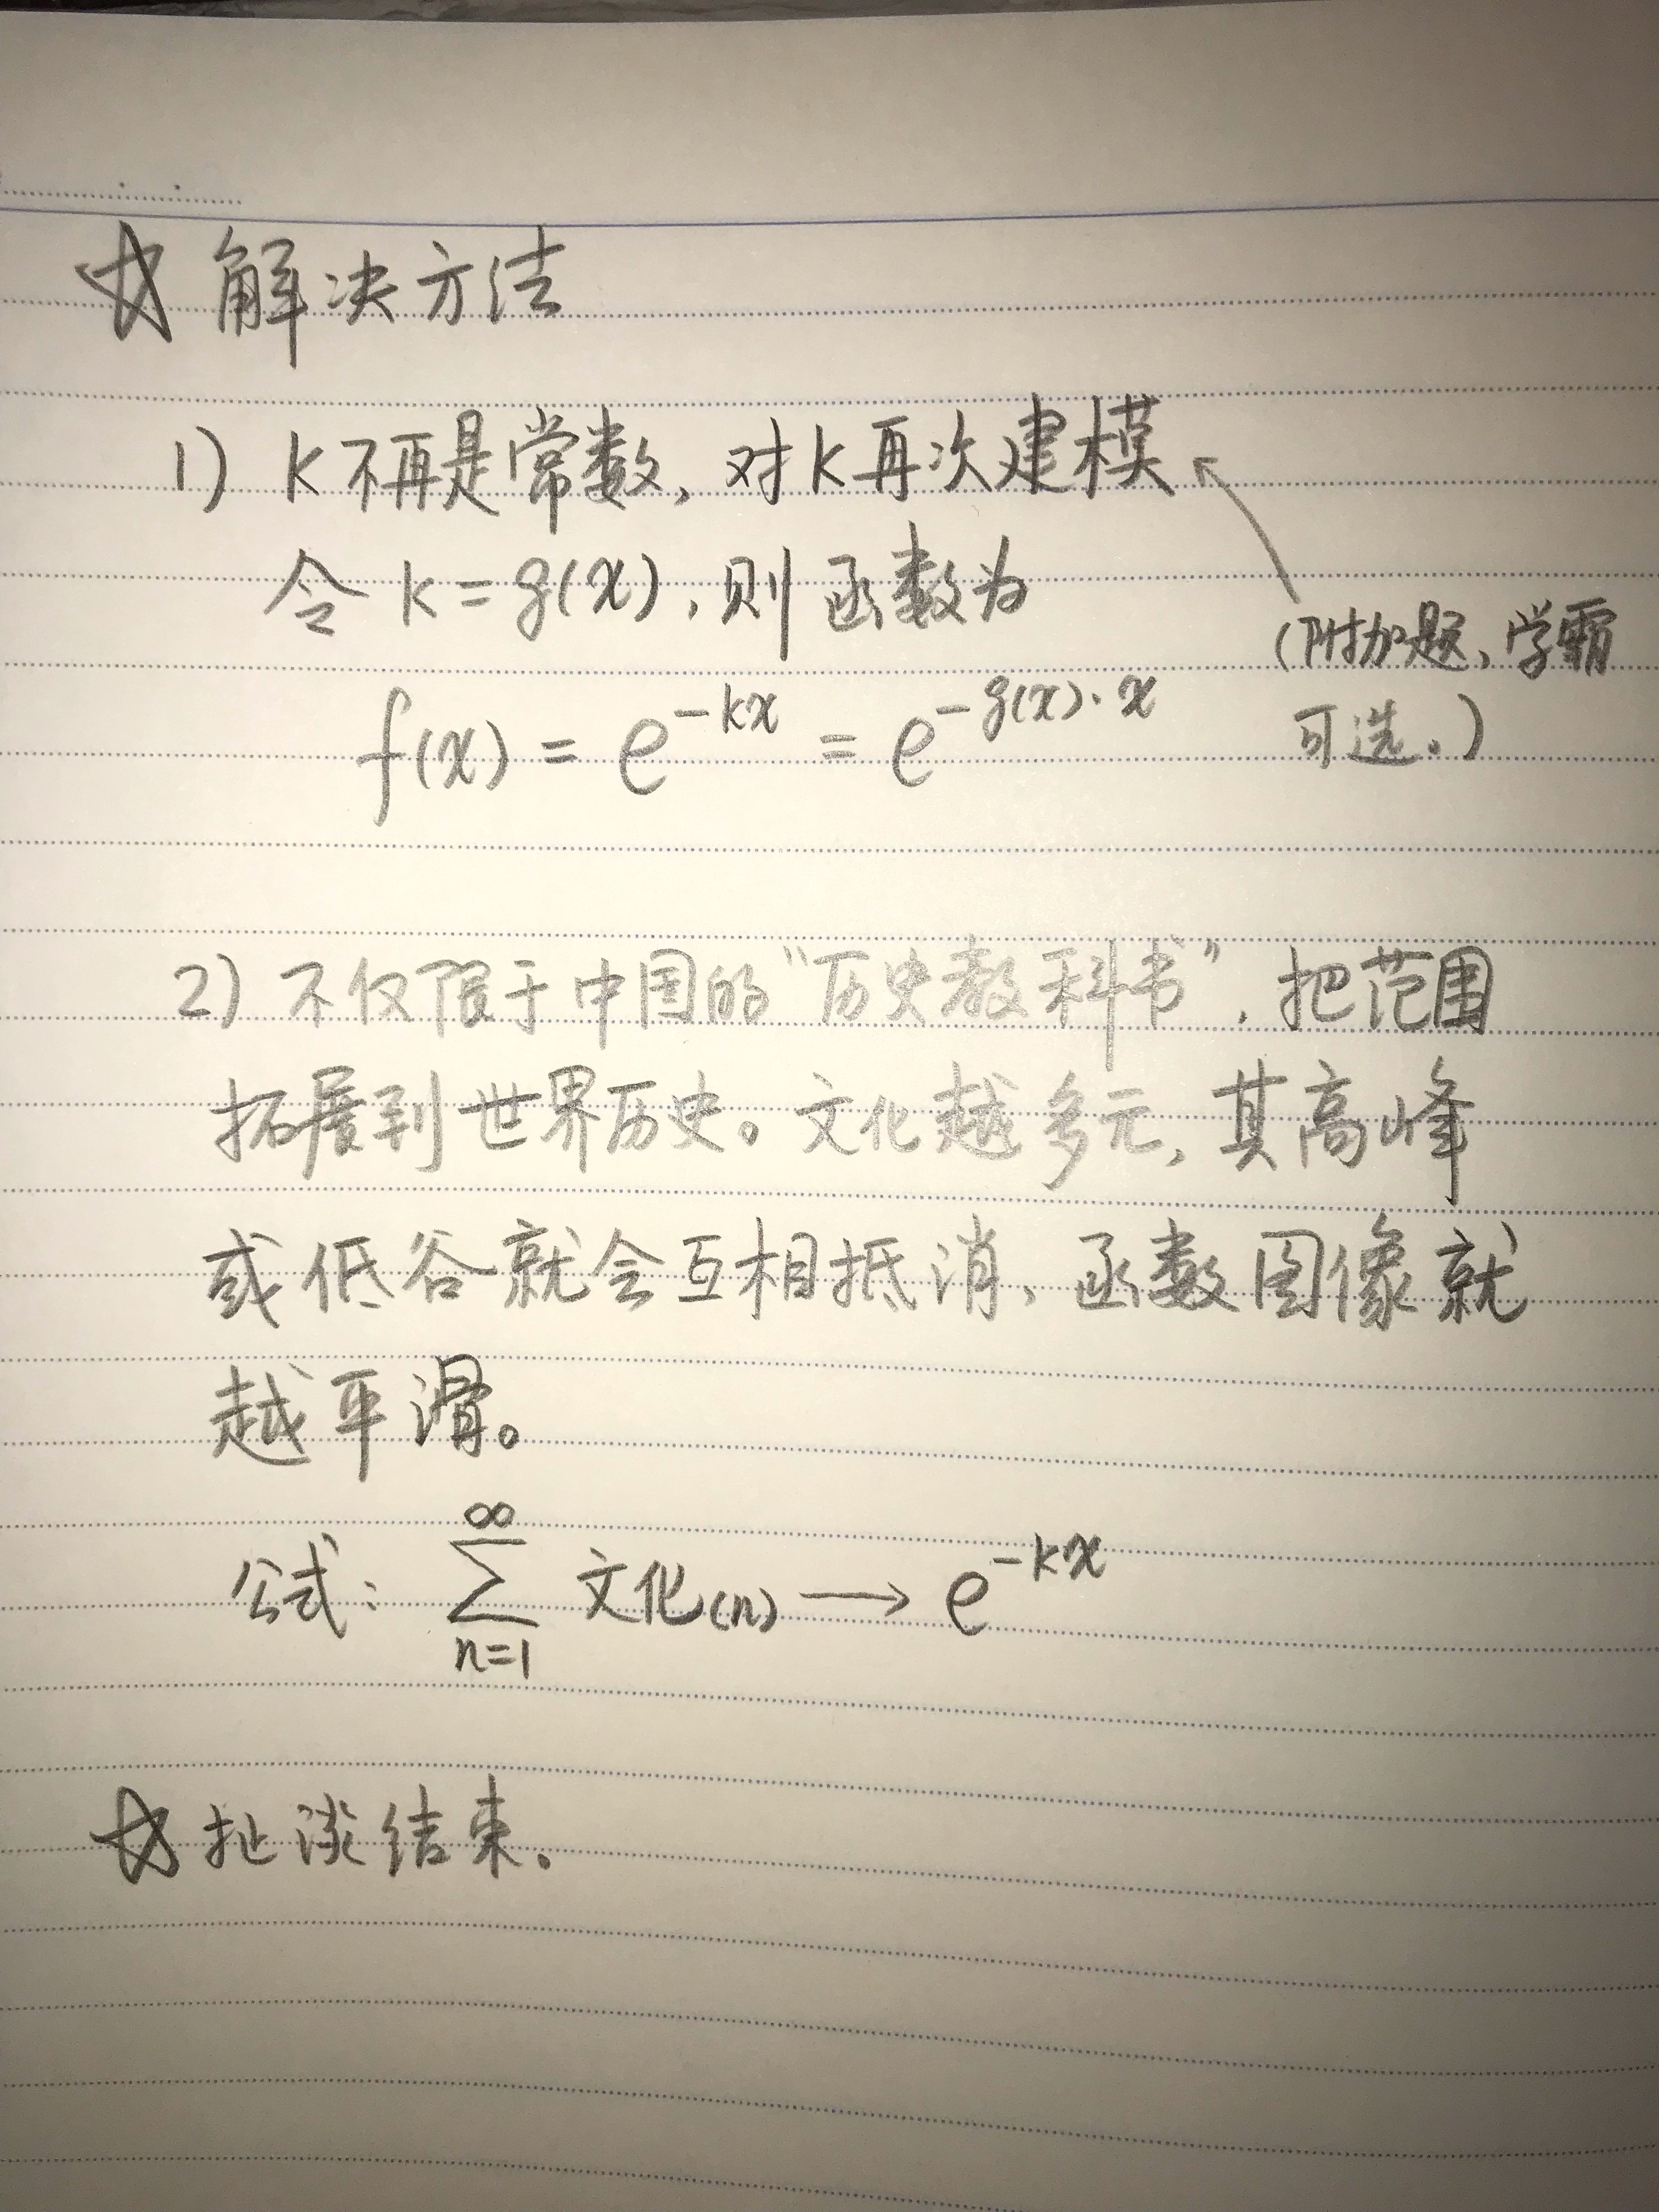 ☆ 解决方法
1) k不再是常数, 对k再次建模
令 k = g(x), 则函数为
(附加题、学霸
可选。)
f(x) = e^{-kx} = e^{-g(x)·x}
2) 不仅限于中国的“历史教科书”, 把范围
拓展到世界历史。文化越多元, 其高峰
或低谷就会互相抵消、函数图像就
越平滑。
公式: \sum_{n=1}^{∞} 文化(n) → e^{-kx}
☆ 扯淡结束.